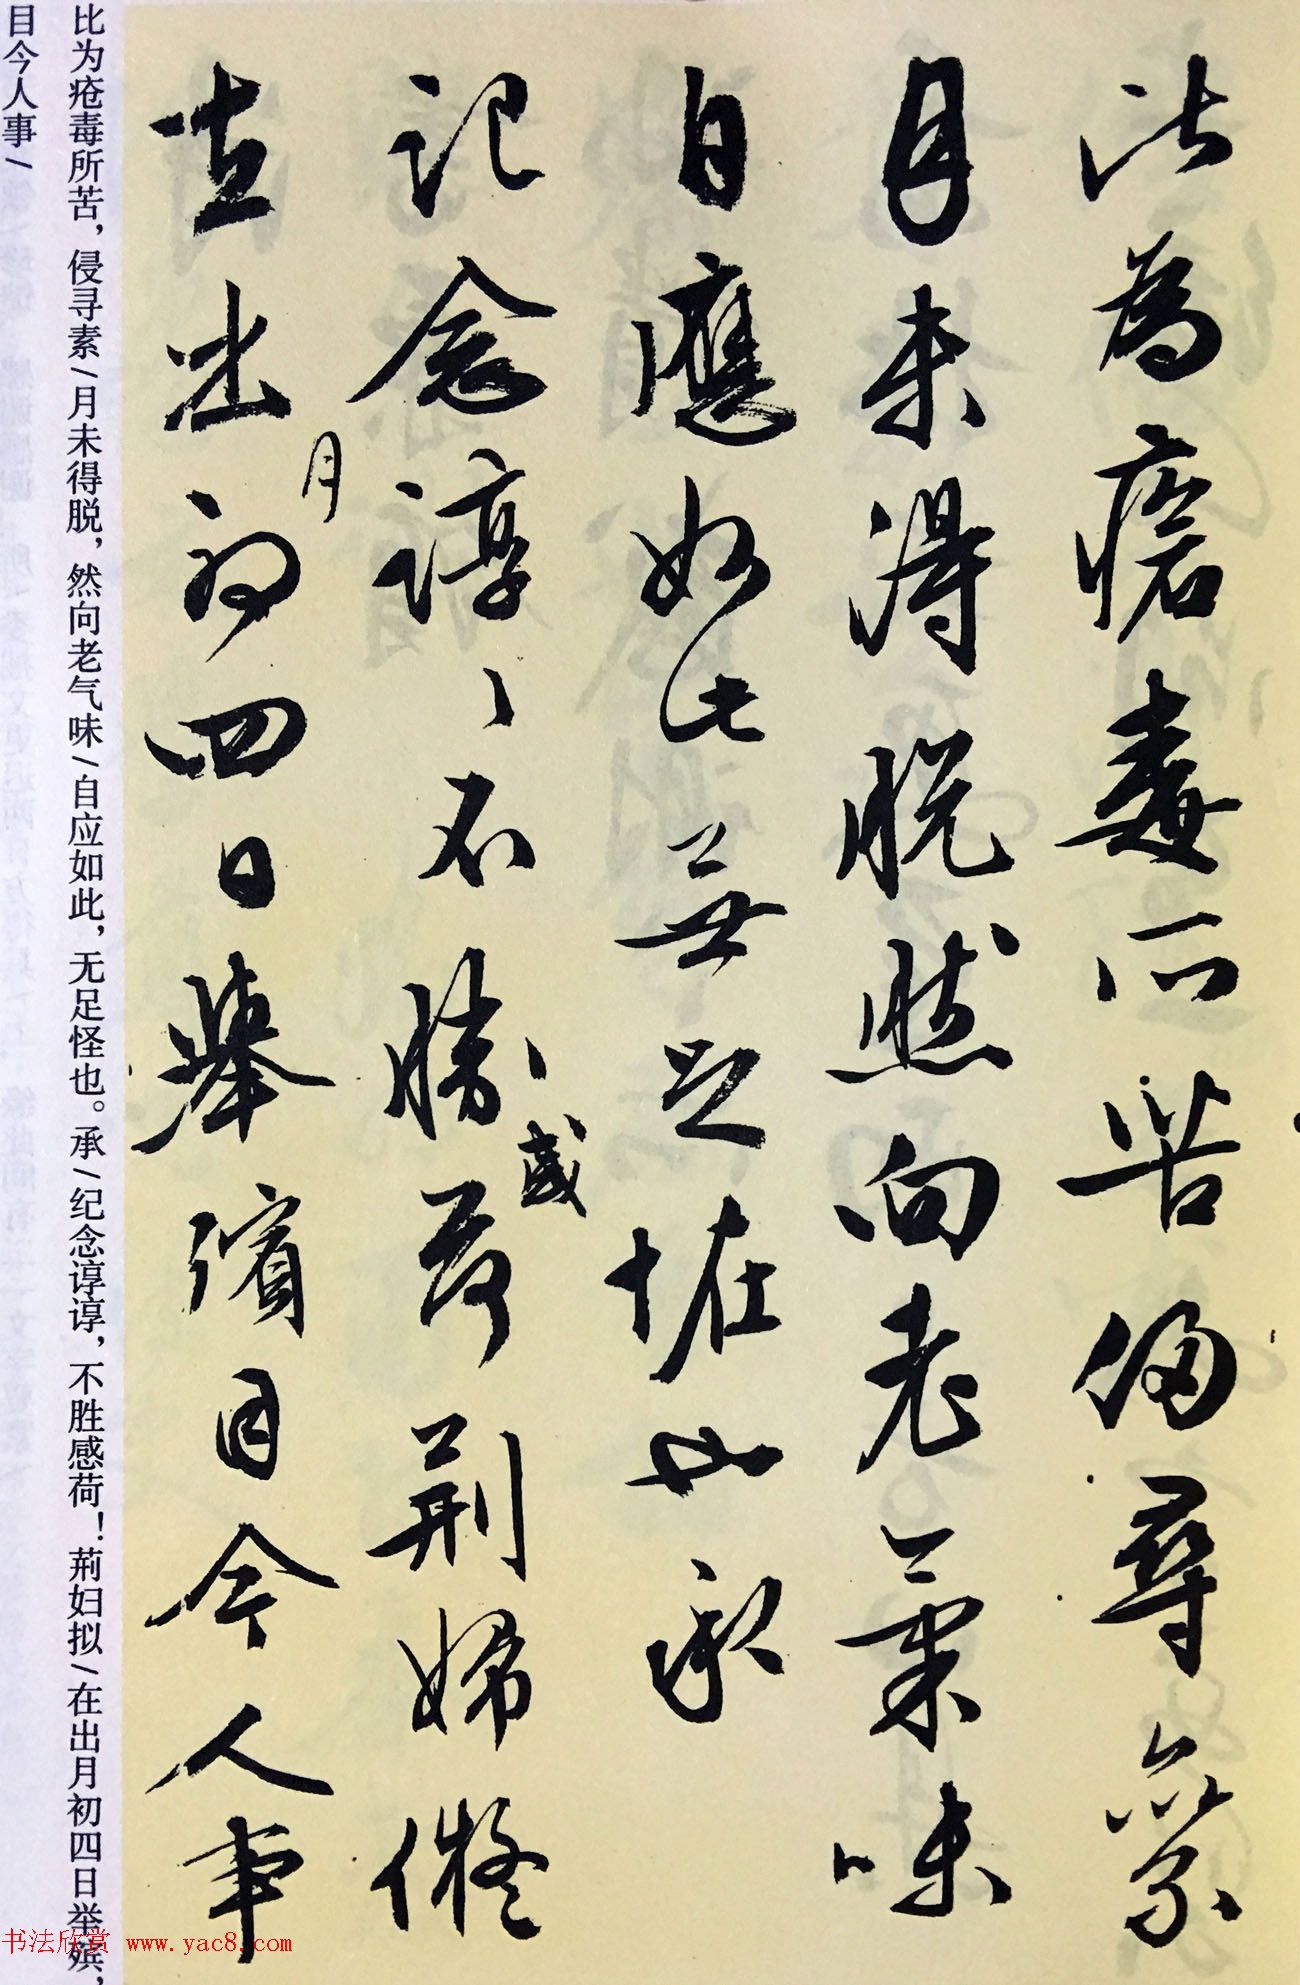 比為瘡毒所苦侵尋索
月未得脱然向老氣味
自應如此無足怪也承
記念諄諄不勝感荷荆婦儗
在出月初四日舉殯目今人事
比为疮毒所苦，侵寻素/月未得脱，然向老气味/自应如此，无足怪也。承/纪念谆谆，不胜感荷！荊妇拟/在出月初四日举殡，
目今人事/
书法欣赏 www.yac8.com